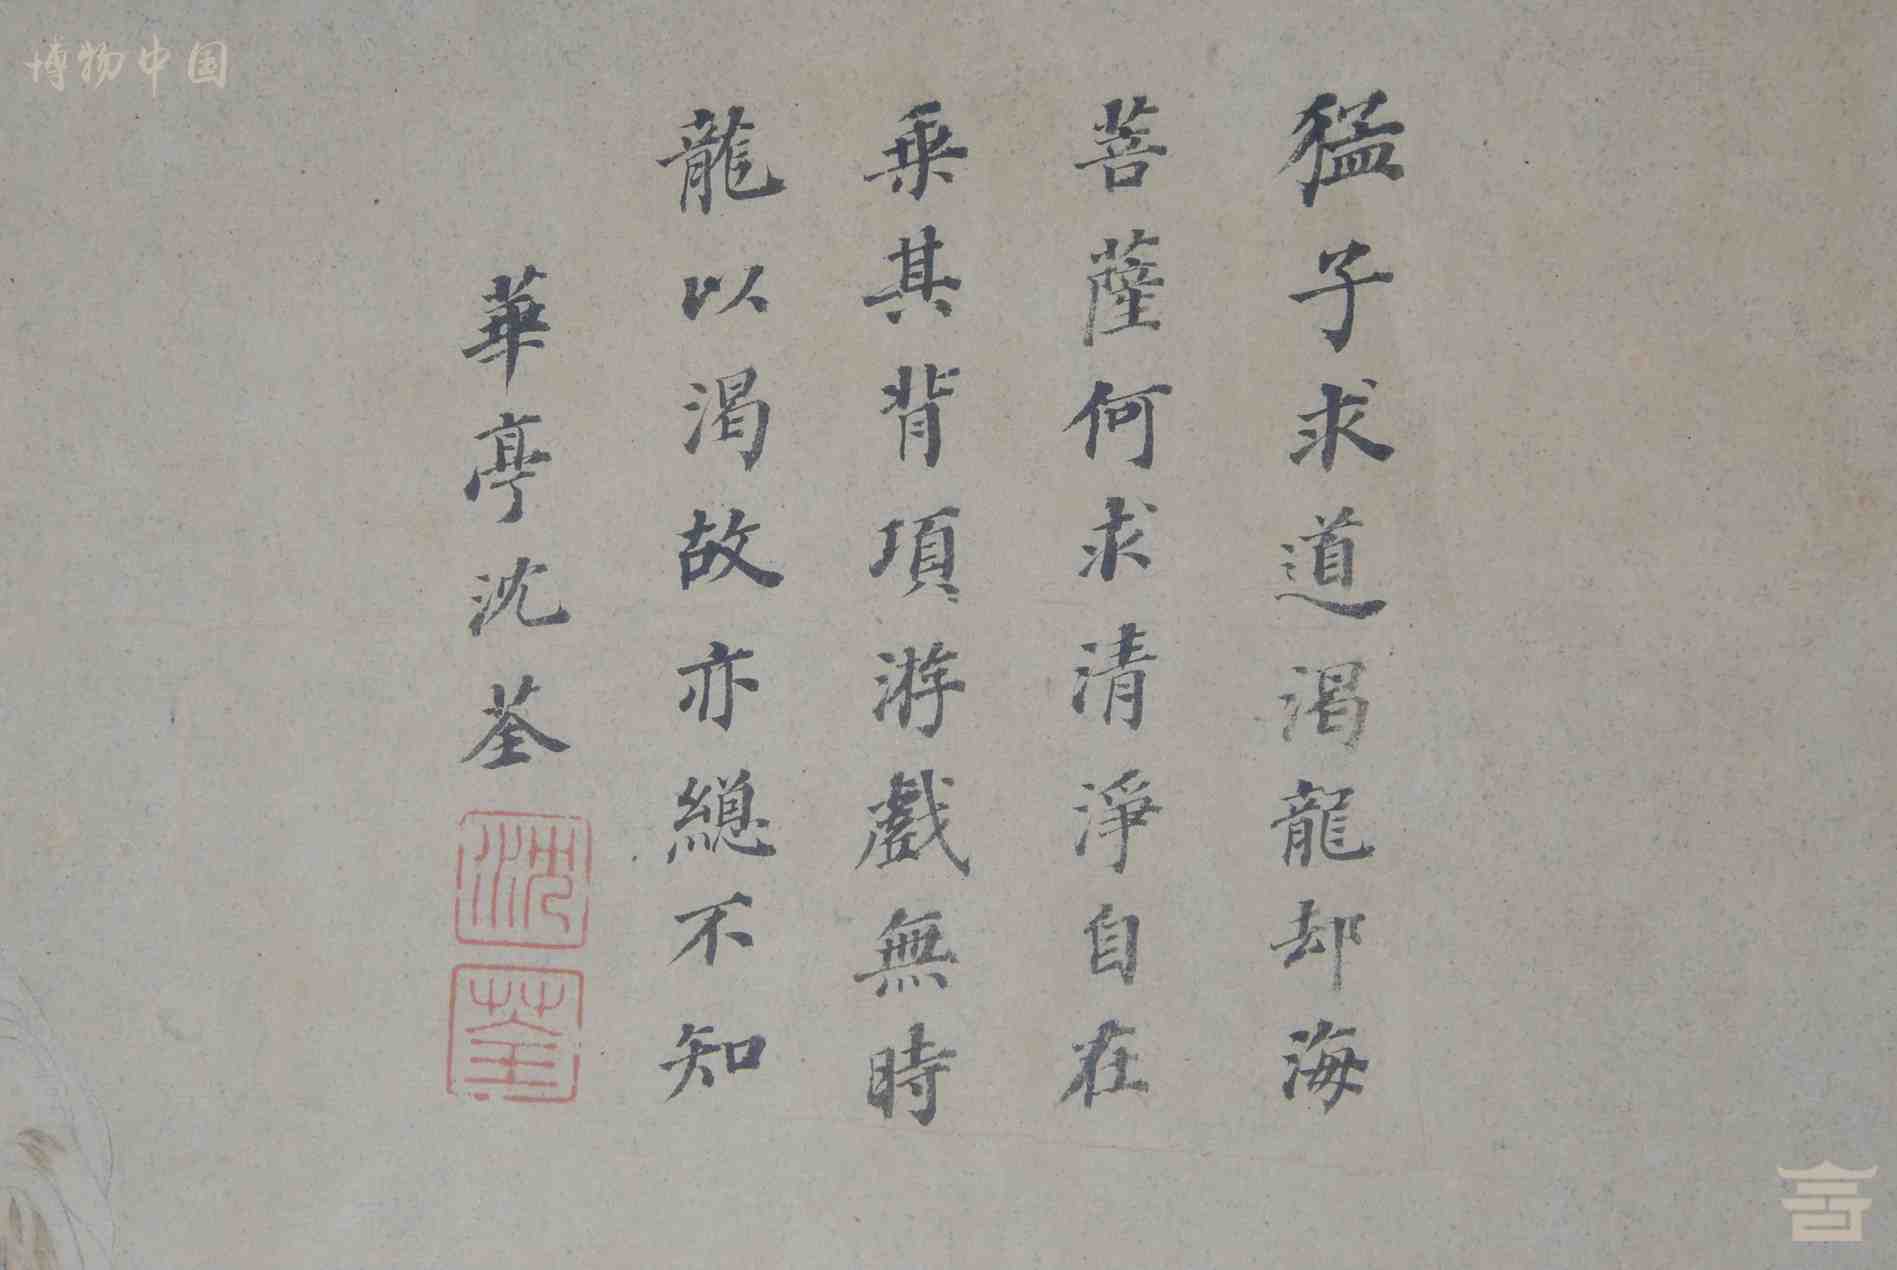 猛子求道渴龍却海
菩薩何求清淨自在
乘其背項游戲無時
龍以渴故亦緫不知
華亭沈荃
沈
荃
博物中国